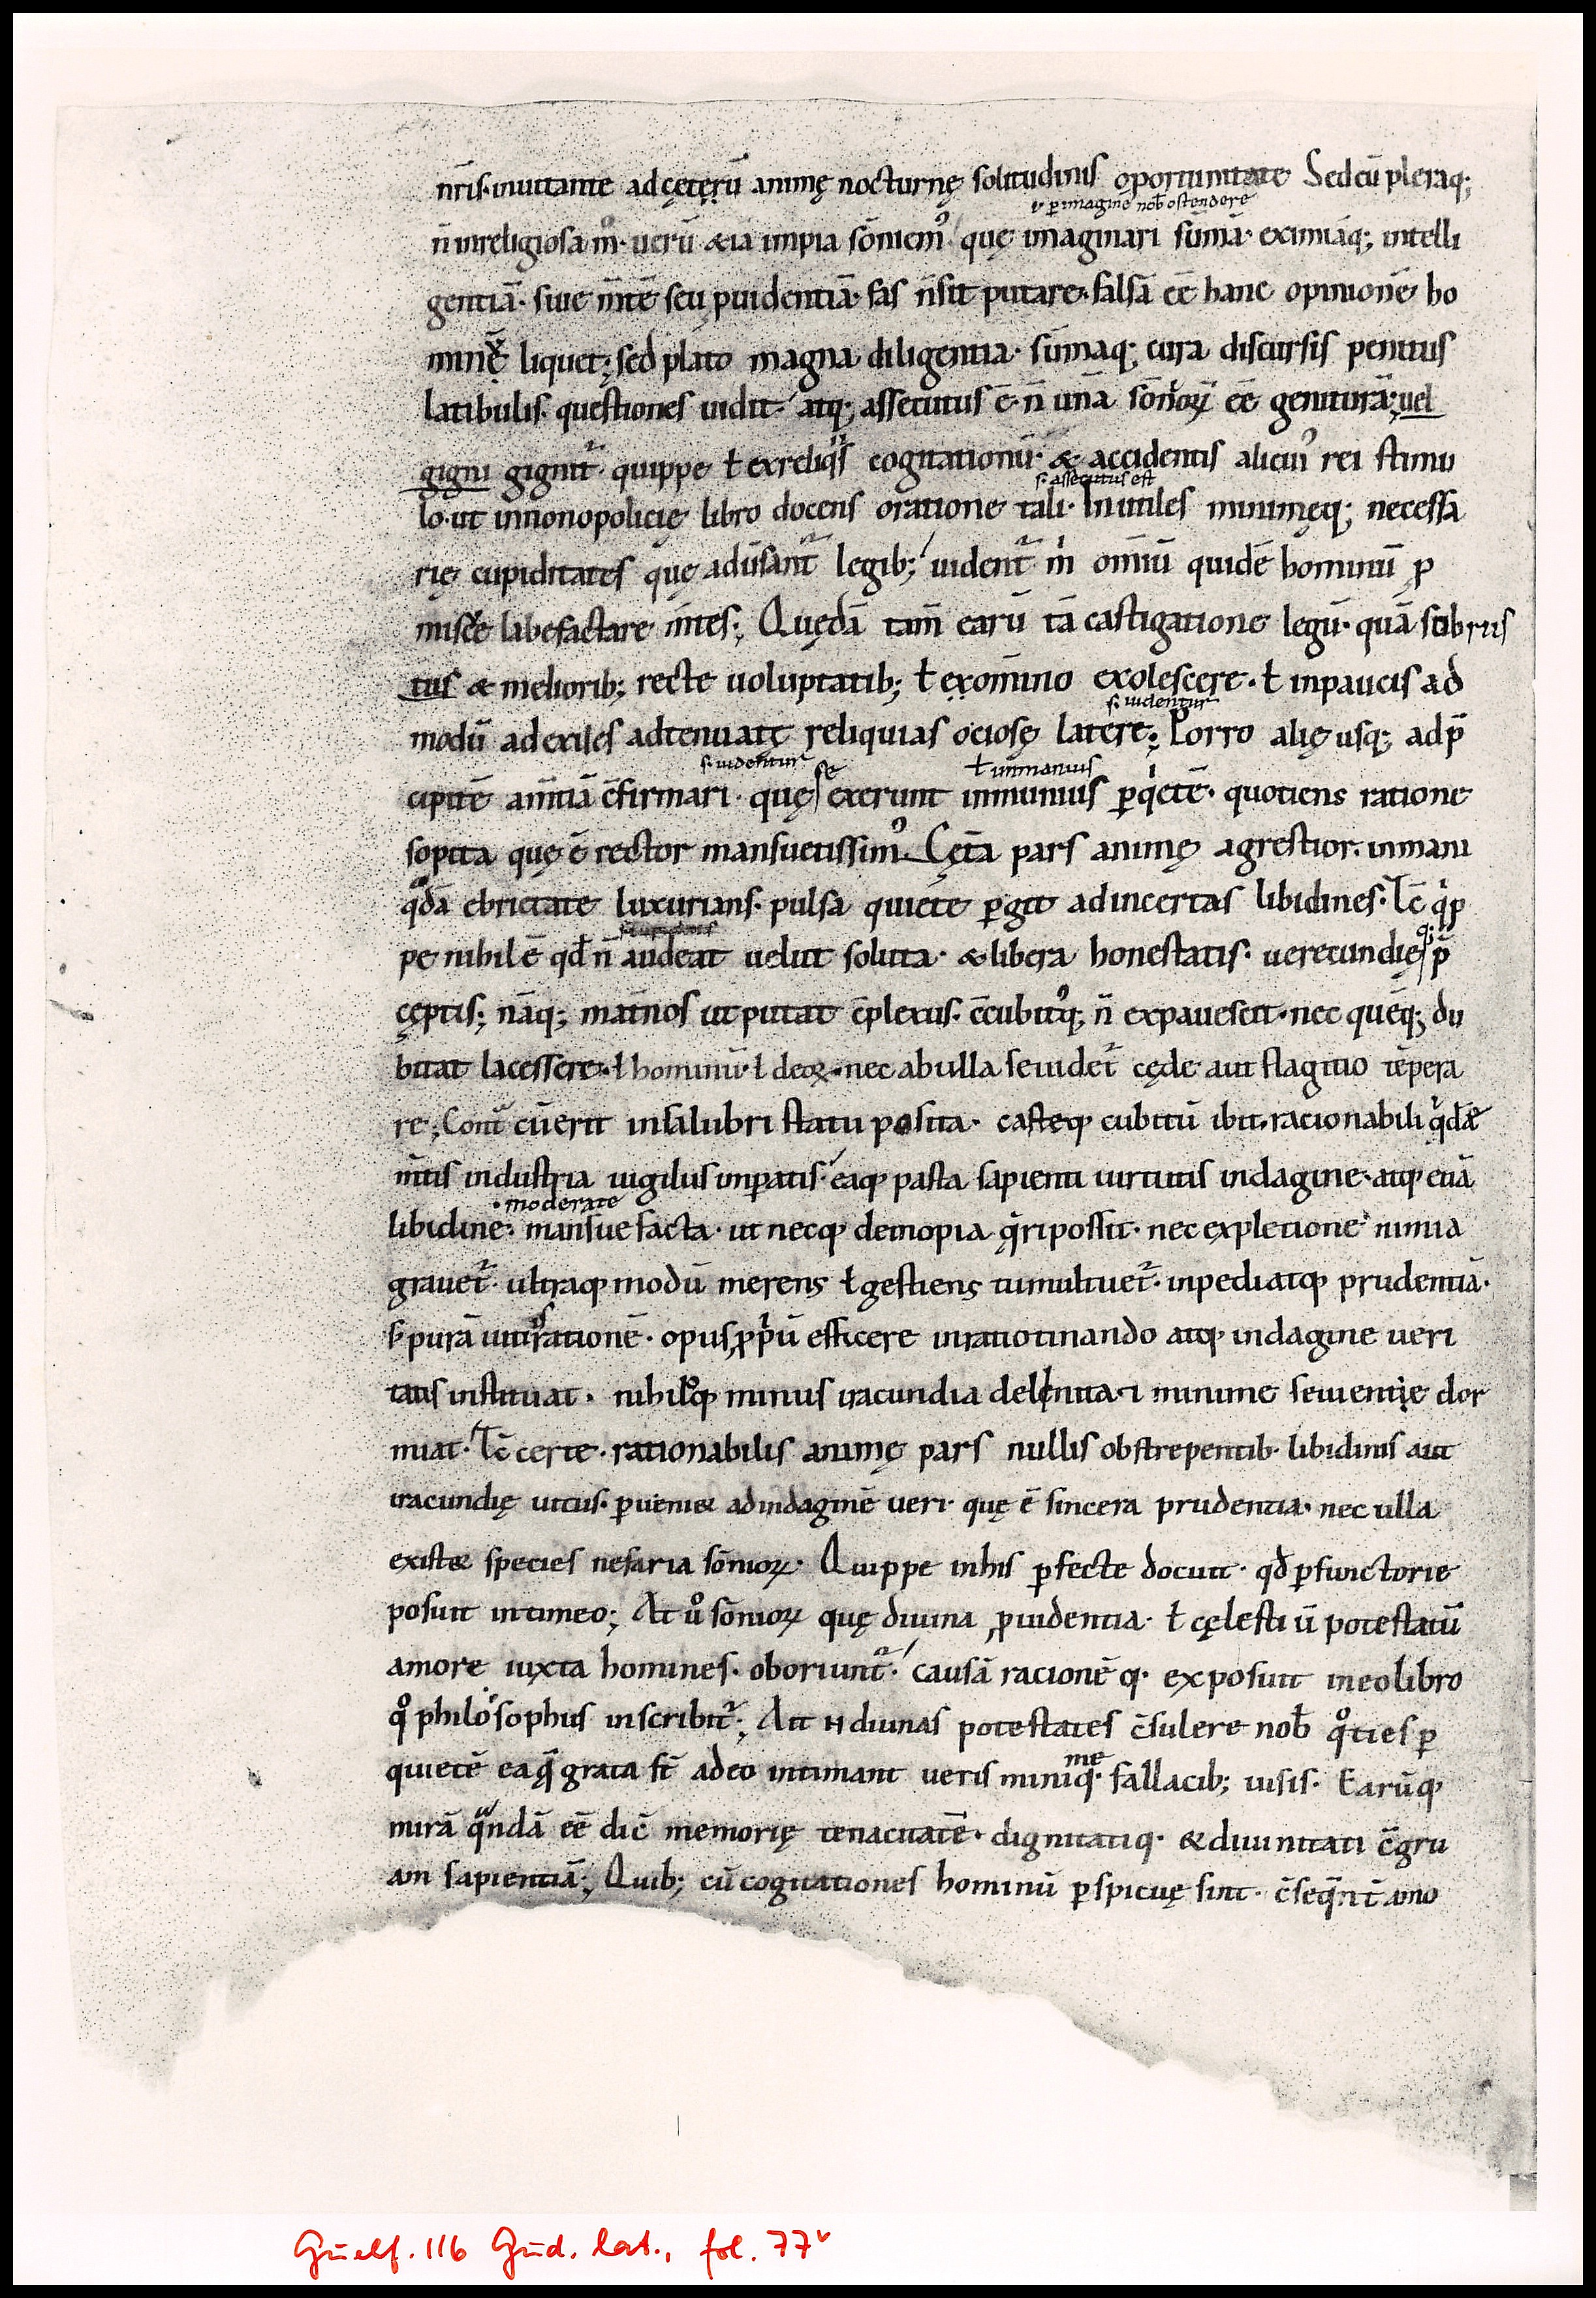 nr̄is· inuitante ad cęterū animę nocturnę solitudinis oportunitate Sed cū pleraq;
ł p imaginē nob ostendere
n̄ inreligiosa m̊· uerū &iā impia sōnięm⁹ quę imaginari sūmā· eximiāq; intelli
gentiā· siue m̄tē seu puidentiā· fas n̄ sit putare· falsā eē hanc opinionē ho
minū liquet; sed plato magna diligentia· sūmaq; cura discursis penitus
latibulis· questiones uidit· atq; assecutus ē· n̄ unā sōnioꝝ eē geniturā; uel
gigni gignit̄ quippe ł ex reliq̇s cogitationū· & accidentis alicui⁹ rei stimu
s· assecutus est
lo· ut in monopolicię libro docens oratione tali· Inutiles minimęq; necessa
rię cupiditates quę aduersant̄ legib; uident̄ m̍ omīū quidē hominū p
misce libefactare m̄tes; Quędā tam̄ earū tā castigatione legū· quā scibrus
tus & meliorib; recte uoluptatib; ł exomīno exolescere· ł in paucis ad
s· uidentur
modū ad exiles adtenuatę reliquias ociosę latere; Porro alię usq; adp̄
s· uidentur se ł inmanius
cipitē am̄tiā c̄firmari· quę exerunt inmunius p q̍etē· quotiens ratione
sopita quę ē rector mansuetissim⁹ Cęt̄a pars animę agrestior· inmani
q̄dā ebrietate luxurians· pulsa quiete pgit ad incertas libidines· Tc̄ q̍p
q;
pe nihil ē qd̄ n̄ audeat uelut soluta· & libera honestatis· uerecundię p̄
cęptis; nāq; mat̄nos ut putat c̄plexus· c̄cubitꝰq; n̄ expauescit· nec quēq; du
bitat lacessere· ł hominū· ł deoꝝ· nec ab ulla se uidet̄ cęde aut flagitio tēpera
re; Cont̄ cū erit in salubri statu posita· casteq; cubitū ibit· racionabili q̍dē
m̄tis industria uigiliis inpatis· eaq; pasta sapienti uirtutis indagine· atq; etiā
· moderate
libidine· mansuefacta· ut necq; dem opia q̄ri possit· nec expletione nimia
grauet̄· ultraq; modū merens ł gestiens tumultuet̄· inpediatq; prudentiā·
s· purā uitiis rationē· opus ꝓpriū efficere in ratiotinando atq; indagine ueri
tatis instituat· nihiloq; minus iracundia delenita· ⁊ minime seuientie dor
miat· Tc̄ certe· rationabilis animę pars nullis obstrepentib· libidinis aut
iracundię uitiis· puenięt ad indaginē ueri· quę ē sincera prudentia· nec ulla
exist& species nefaria sōnioꝝ· Quippe in his pfecte docuit· qd̄ pfunctorie
posuit in timeo; At ů sōnioꝝ quę diuina ꝓuidentia· ł cęlestiū potestatū
amore iuxta homines· oboriunt̄· causā racionēq· exposuit in eo libro
q̊ philosophus inscribit̄; Ait н diuinas potestates c̄sulere nob̄ q̊ties p
me
quietē ea q̄ grata st̄ adeo intimant ueris miniq· fallacib; uisis· Earūq;
mirā q̄ndā eē dic̄ memorię tenacitatē· dignitatiq· & diuinitati c̄gru
am sapientiā; Quib; cū cogitationes hominū pspicuę sint· c̄seq̄nt̄ ano
Guelf. 116 Gud. lat., fol. 77ᵛ